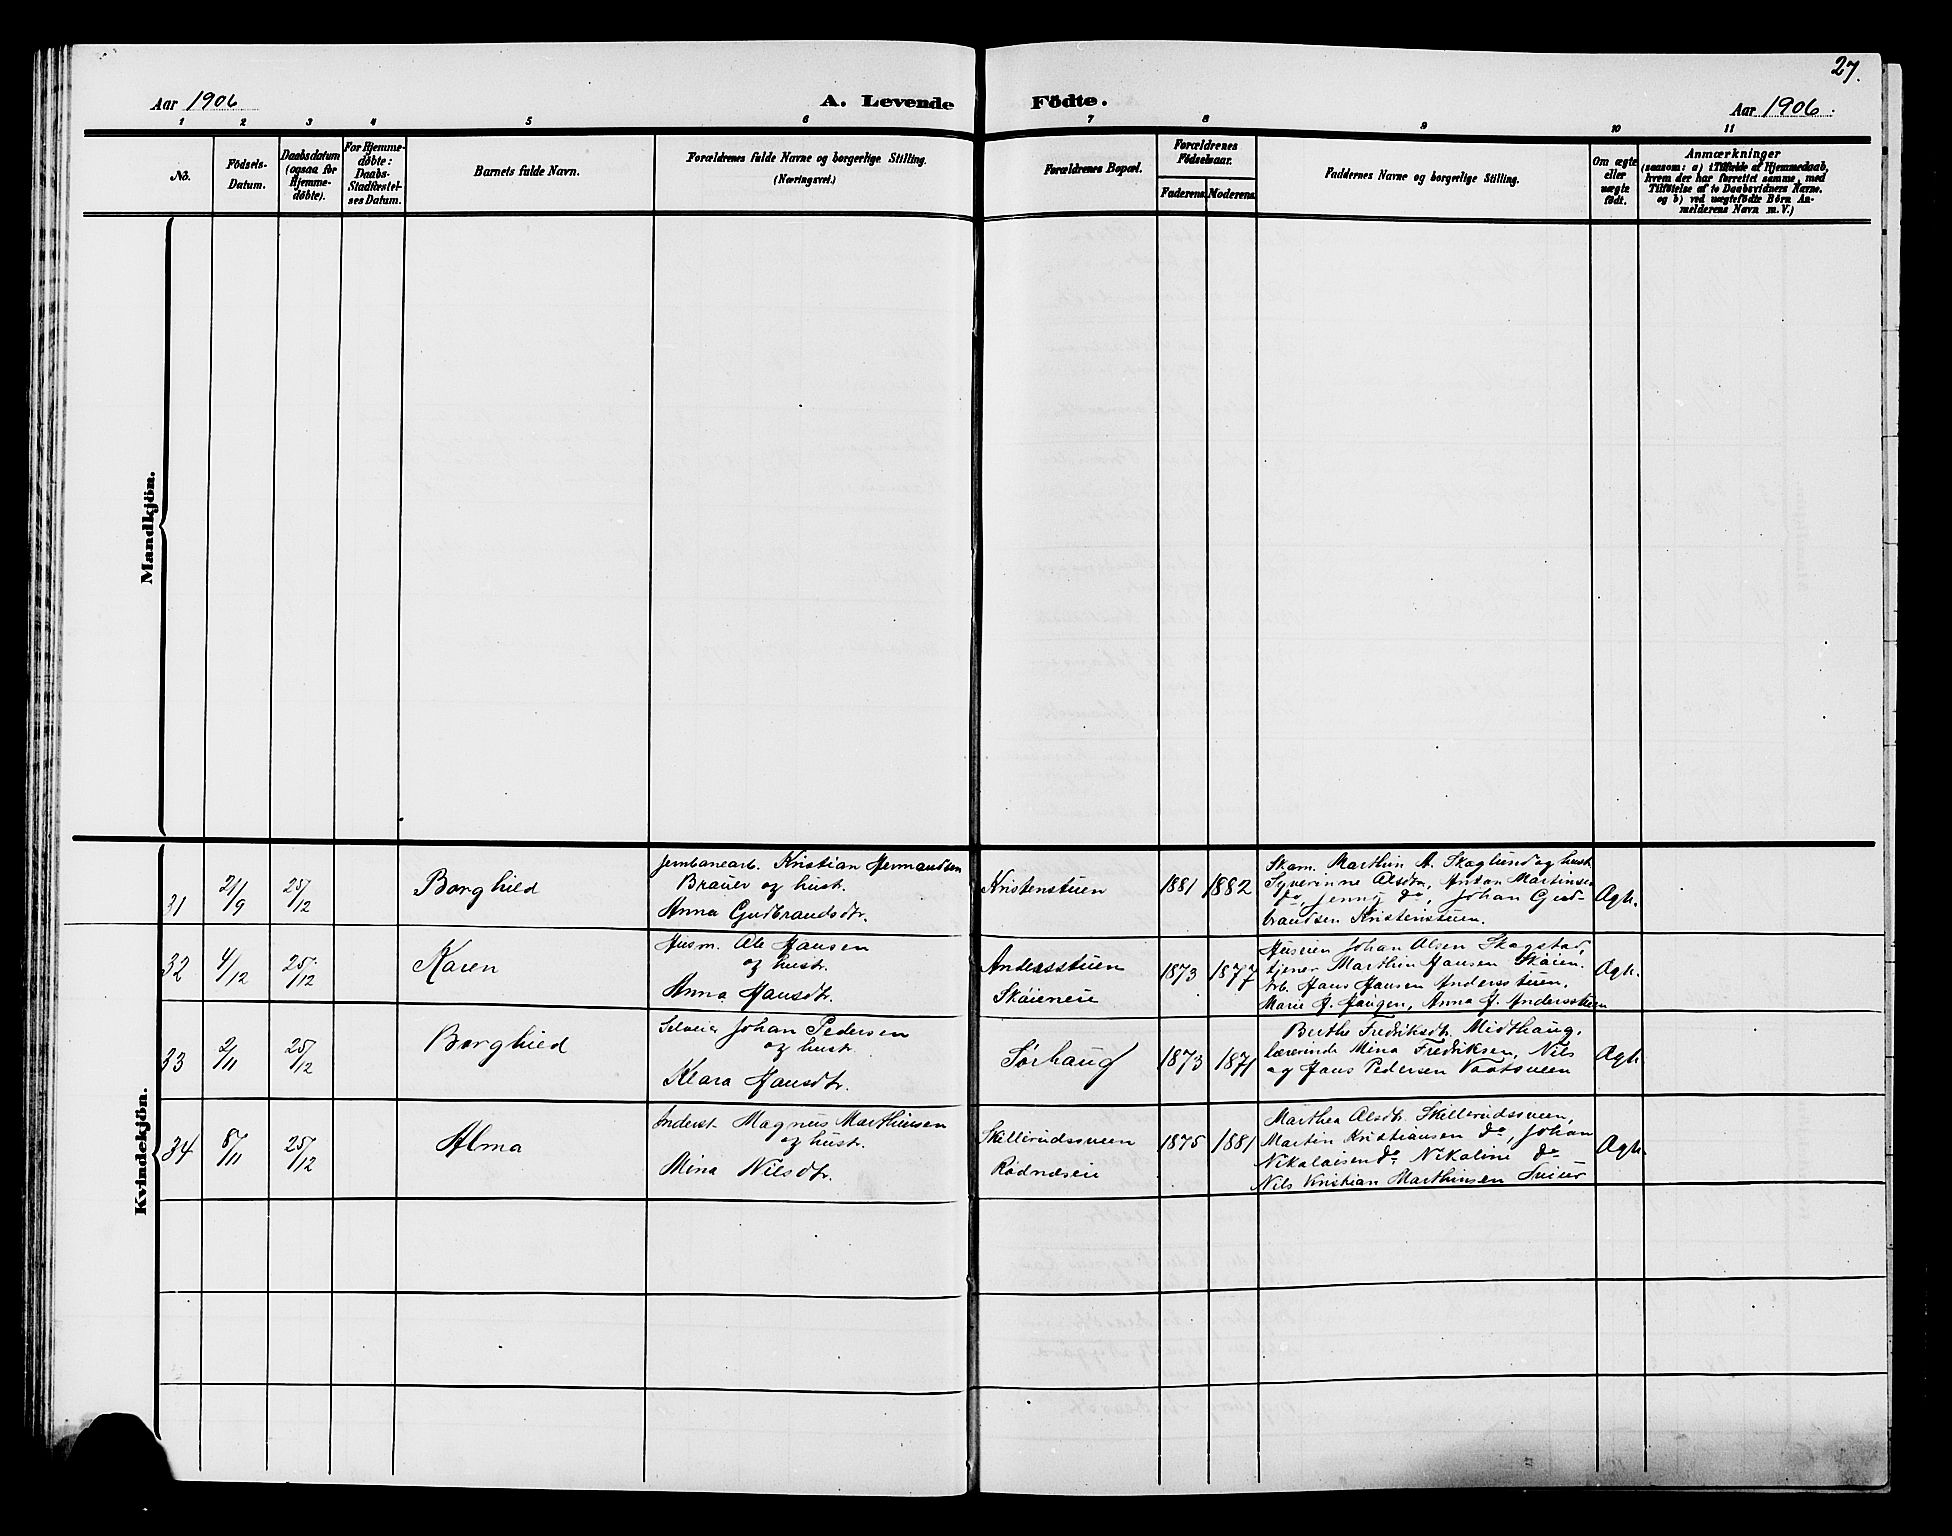 27.
Aar 1906
A. Levende Födte.
Aar 1906.
1 2 3 4 5 6 7 8 9 10 11
No.
Födsels-
Datum.
Daabsdatum
(ogsaa for
Hjemme-
döbte).
For Hjemme-
döbte:
Daabs-
Stadfæstel-
ses Datum.
Barnets fulde Navn.
Forældrenes fulde Navne og borgerlige Stilling.
(Næringsvei.)
Forældrenes Bopæl.
Forældrenes
Födselsaar.
Faderens
Moderens
Faddernes Navne og borgerlige Stilling.
Om ægte
eller
uægte
födt.
Anmærkninger
(saasom: a) i Tilfælde af Hjemmedaab,
hvem der har forrettet samme, med
Tilföielse af to Daabsvidners Navne.
og b) ved uægtefödte Börn An-
melderens Navn m. V.)
Mandkjön.
Kvindekjön.
31
2/9
25/12
Borghild
Jernbanearb. Kristian Hermandsen
Brauer og hustr.
Anna Gudbrandsdtr.
Kristenstuen
1881
1882
Skom. Marthin A. Skaglund og hustr
Syverinne Olsdtr, Anton Martinsen
do, Jenny do, Johan Gud-
brandsen Kristenstuen.
Ægte.
32
4/12
25/12
Karen
Husm. Ole Hansen
og hustr.
Anna Hansdtr.
Andersstuen
Skøieneie
1873
1877
Huseier Johan Olsen Skogstad,
tjener Marthin Hansen Skøien.
Arb. Hans Hansen Andersstuen,
Marie J. Haugen, Anna H. Andersstuen
Ægte.
33
2/11
25/12
Borghild
Selveier Johan Pedersen
og hustr.
Klara Hansdtr.
Sørhaug
1873
1871
Berthe Fredriksdtr. Midthaug,
lærerinde Mina Fredriksen, Nils
og Hans Pedersen
Ægte
34
8/11
25/12
Alma
Inderst Magnus Marthinsen
og hustr.
Mina Nilsdtr.
Skillerudsveen
Rødnæseie
1875
1881
Marthea Olsdtr. Skillerudsveen,
Martin Kristiansen do, Johan
Nikolaisen do, Nikoline do
Nils Kristian Marthinsen
Ægte.